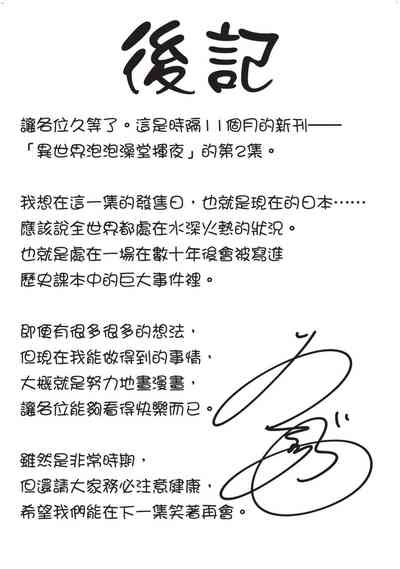 後記
讓各位久等了。這是時隔11個月的新刊——
「異世界泡泡澡堂輝夜」的第2集。
我想在這一集的發售日，也就是現在的日本……
應該說全世界都處在水深火熱的狀況。
也就是處在一場在數十年後會被寫進
歷史課本中的巨大事件裡。
即便有很多很多的想法，
但現在我能做得到的事情，
大概就是努力地畫漫畫，
讓各位能夠看得快樂而已。
雖然是非常時期，
但還請大家務必注意健康，
希望我們能在下一集笑著再會。